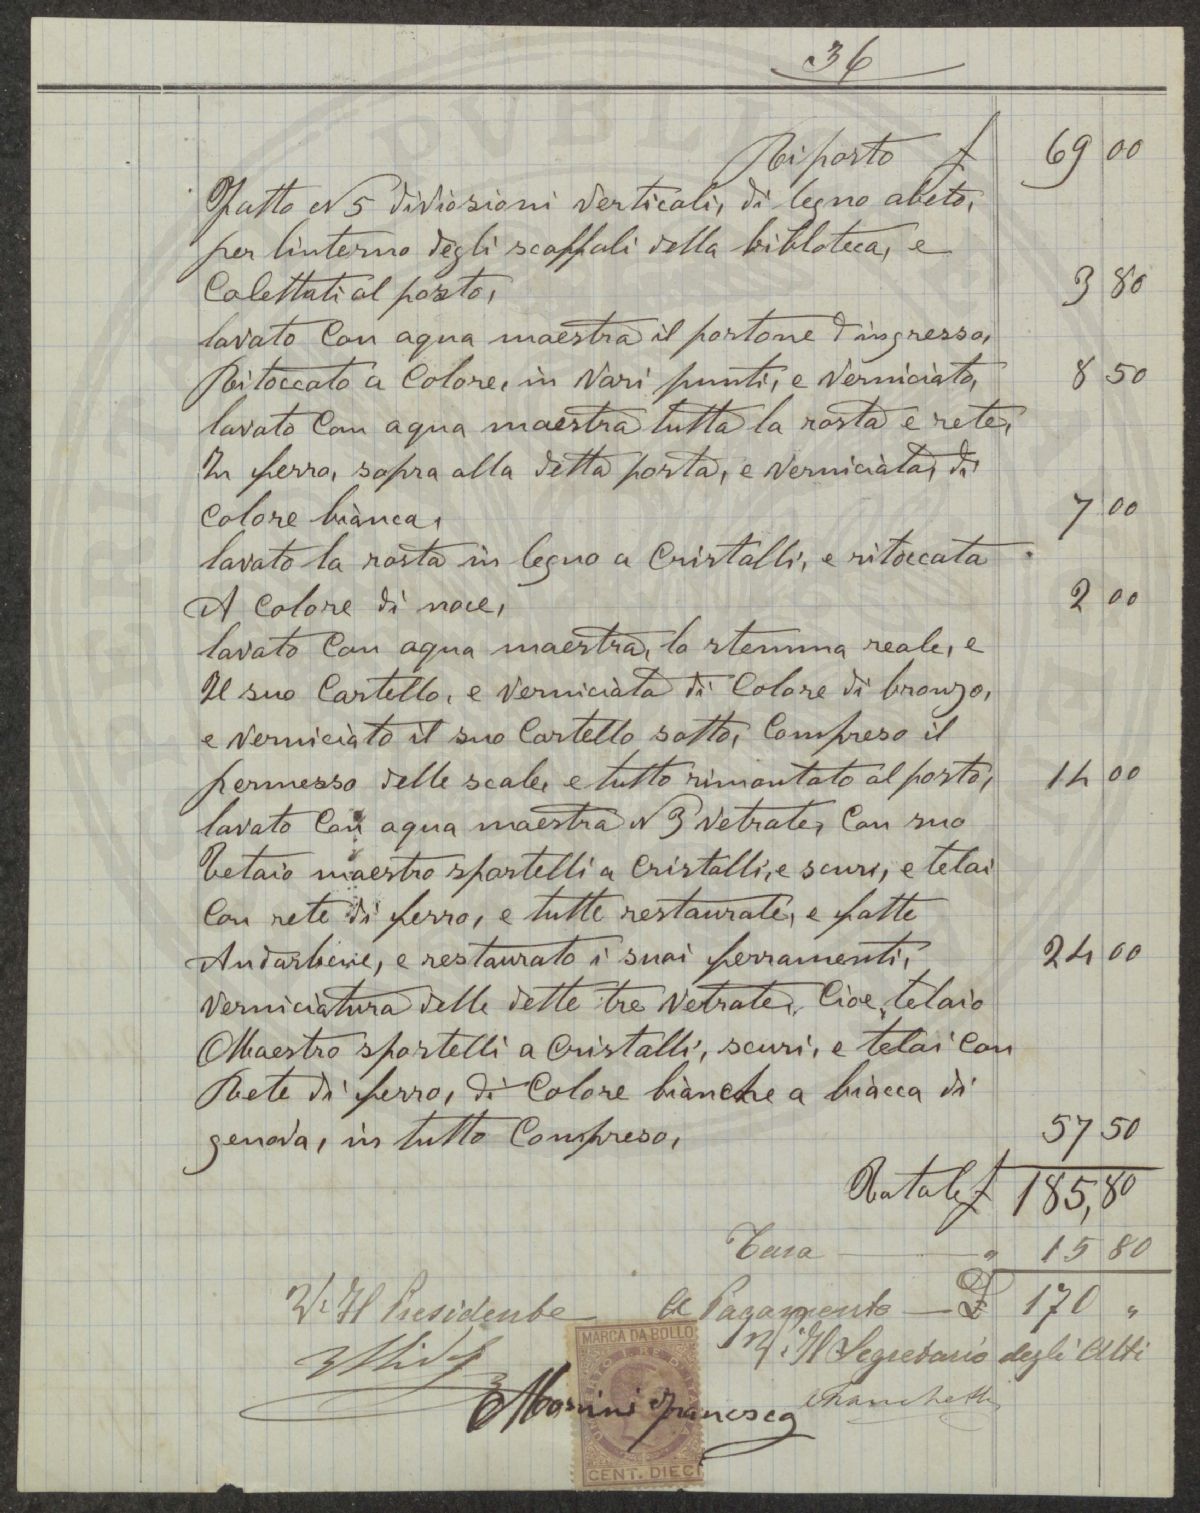 36
Riporto £ 69 00
Fatto N 5 diviosioni verticali, di legno abeto,
per linterno degli scaffali della bibloteca, e
Calettati al posto, 3 80
lavato Con aqua maestra il portone d ingresso,
Ritoccato a Colore, in vari punti, e verniciato, 8 50
lavato Con aqua maestra tutta la rosta e rete,
In ferro, sopra alla detta porta, e verniciata, di
Colore bianca, 7 00
lavato la rosta in legno a Cristalli, e ritoccata
A Colore di noce, 2 00
lavato Con aqua maestra, lo stemma reale, e
Il suo Cartello, e verniciata di Colore di bronzo,
e verniciato il suo Cartello sotto, Compreso il
permesso delle scale, e tutto rimontato al posto, 14 00
lavato Con aqua maestra N 3 vetrate, Con suo
Telaio maestro sportelli a Cristalli, e scuri, e telai
Con rete di ferro, e tutte restaurate, e fatte
Andarbene, e restaurato i suoi ferramenti, 24 00
Verniciatura delle dette tre vetrate, Cioe, telaio
Maestro sportelli a Cristalli, scuri, e telai Con
Rete di ferro, di Colore bianche a biacca di
genova, in tutto Compreso, 57 50
Totale £ 185,80
Tara " 15 80
Pagamento £ 170 "
V. Il Presidente
V. Il Segretario degli Atti
MARCA DA BOLLO
Masini Francesco
CENT. DIECI